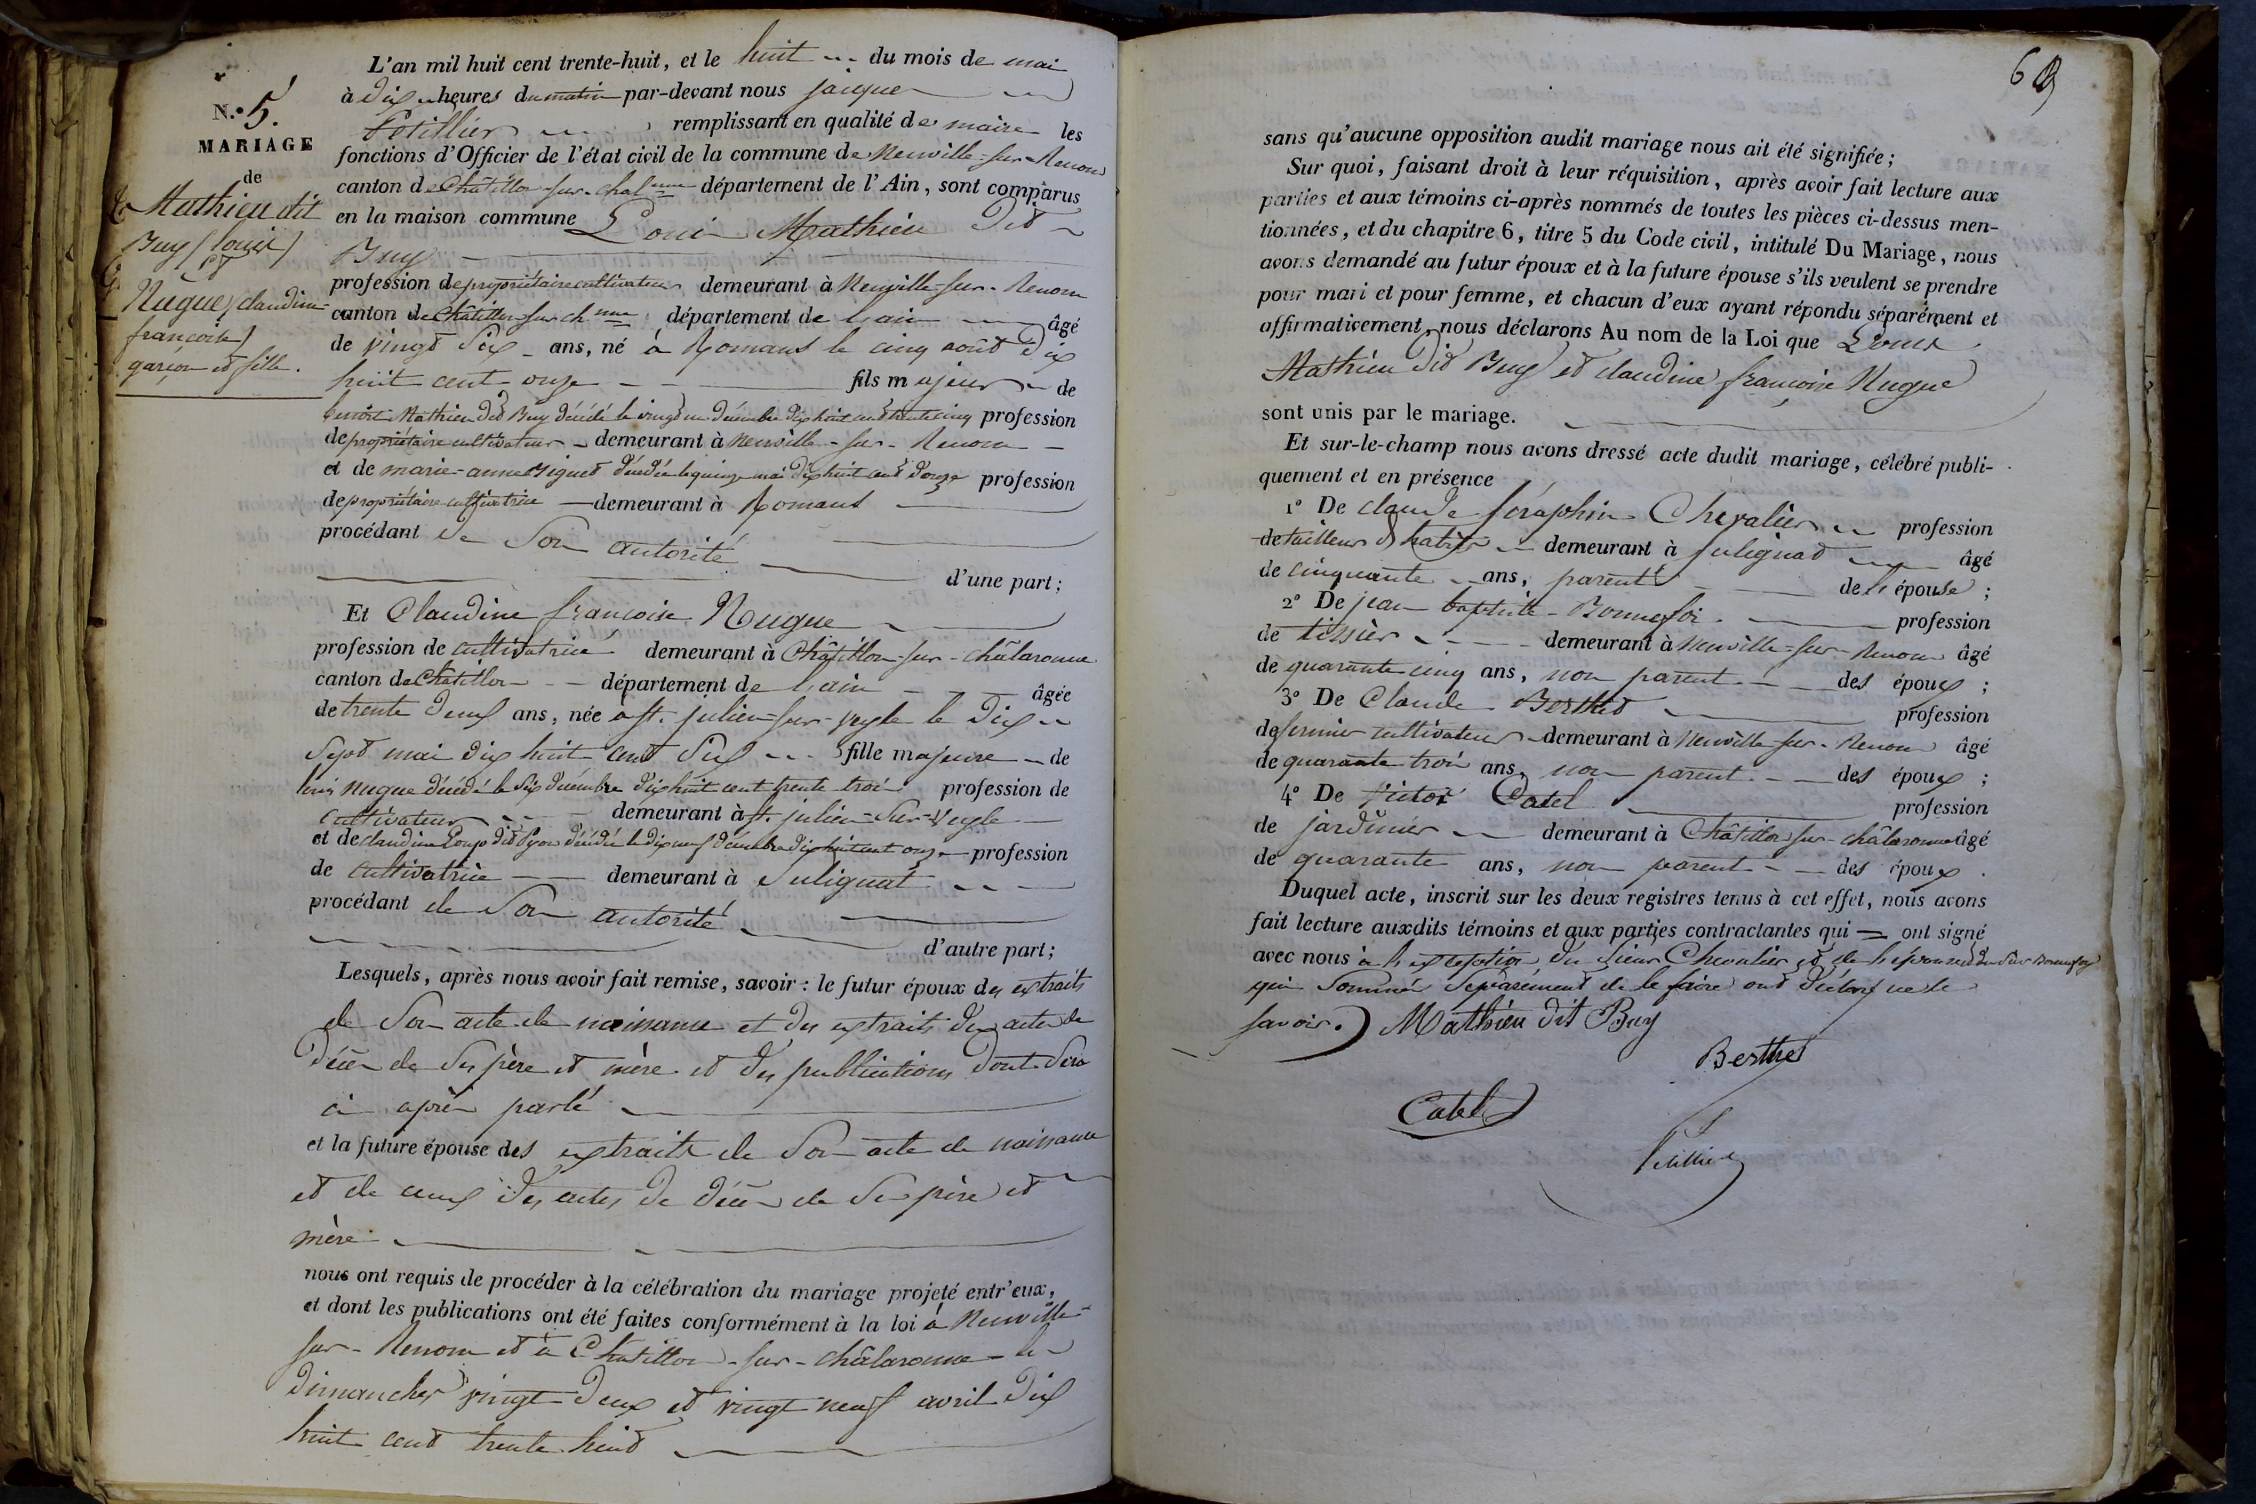 N.° 5.
MARIAGE
de
Mathieu dit
Buy (louis)
Et
Nugue (claudine
francoise)
garçon et fille.
L'an mil huit cent trente-huit, et le huit du mois de mai
à dix heures du matin par-devant nous jacques
Petillier remplissant en qualité de maire les
fonctions d'Officier de l'état civil de la commune de Neuville-sur-Renom
canton de Châtillon-sur-chal.nne département de l'Ain, sont comparus
en la maison commune Louis Mathieu Dit
Buy
profession de propriétaire cultivateur demeurant à Neuville-sur-Renom
canton de Châtillon sur ch.nne département de l'ain âgé
de vingt six ans, né à Romans le cinq août dix
huit cent onze fils majeur de
benoit Mathieu dit Buy décédé le vingt un décembre dix huit cent trente cinq profession
de propriétaire cultivateur demeurant à Neuville-sur-Renom
et de marie-anne Miguet décédée le quinze mai dix huit cent douze profession
de propriétaire cultivatrice demeurant à Romans
procédant de Son autorité
d'une part;
Et Claudine francoise Nugue
profession de cultivatrice demeurant à Châtillon-sur-châlaronne
canton de Châtillon département de l'ain âgée
de trente deux ans, née à st. julien-sur-veyle le dix
Sept mai dix huit cent Six fille majeure de
louis Nugue décédé le Six décembre dix huit cent trente trois profession de
cultivateur demeurant à st. julien-Sur-Veyle
et de claudine Loup dit décédée le dix neuf décembre dix huit cent onze profession
de cultivatrice demeurant à Sulignat
procédant de Son autorité
d'autre part;
Lesquels, après nous avoir fait remise, savoir: le futur époux des extraits
de Son acte de naissance et des extraits des actes de
décès de Ses père et mère et des publications dont Sera
ci après parlé
et la future épouse des extraits de Son acte de naissance
et de ceux des actes de décès de Ses père et
mère
nous ont requis de procéder à la célébration du mariage projeté entr'eux,
et dont les publications ont été faites conformément à la loi à Neuville-
sur-Renom et à Châtillon-sur-châlaronne les
dimanches vingt deux et vingt neuf avril dix
huit cent trente huit
sans qu'aucune opposition audit mariage nous ait été signifiée;
Sur quoi, faisant droit à leur réquisition, après avoir fait lecture aux
parties et aux témoins ci-après nommés de toutes les pièces ci-dessus men-
tionnées, et du chapitre 6, titre 5 du Code civil, intitulé Du Mariage, nous
avons demandé au futur époux et à la future épouse s'ils veulent se prendre
pour mari et pour femme, et chacun d'eux ayant répondu séparément et
affirmativement, nous déclarons Au nom de la Loi que Louis
Mathieu Dit Buy et claudine françoise Nugue
sont unis par le mariage.
Et sur-le-champ nous avons dressé acte dudit mariage, célébré publi-
quement et en présence
1° De claude Séraphin Chevalier profession
de tailleur d'habits demeurant à Sulignat âgé
de cinquante ans, parent de l'épouse;
2° De jean baptiste Bonnefoi profession
de tissier demeurant à Neuville-sur-Renom âgé
de quarante cinq ans, non parent des époux;
3° De Claude Berthet profession
de fermier cultivateur demeurant à Neuville-sur-Renom âgé
de quarante trois ans, non parent des époux;
4° De Victor Catel profession
de jardinier demeurant à Châtillon sur-châlaronne âgé
de quarante ans, non parent des époux.
Duquel acte, inscrit sur les deux registres tenus à cet effet, nous avons
fait lecture auxdits témoins et aux parties contractantes qui ont signé
avec nous à l'exception du Sieur Chevalier et de l'épouse et du Sieur Bonnefoy
qui Sommés Séparément de le faire ont déclaré ne le
savoir. Mathieu dit Buy
Berthet
Catel
Petillier